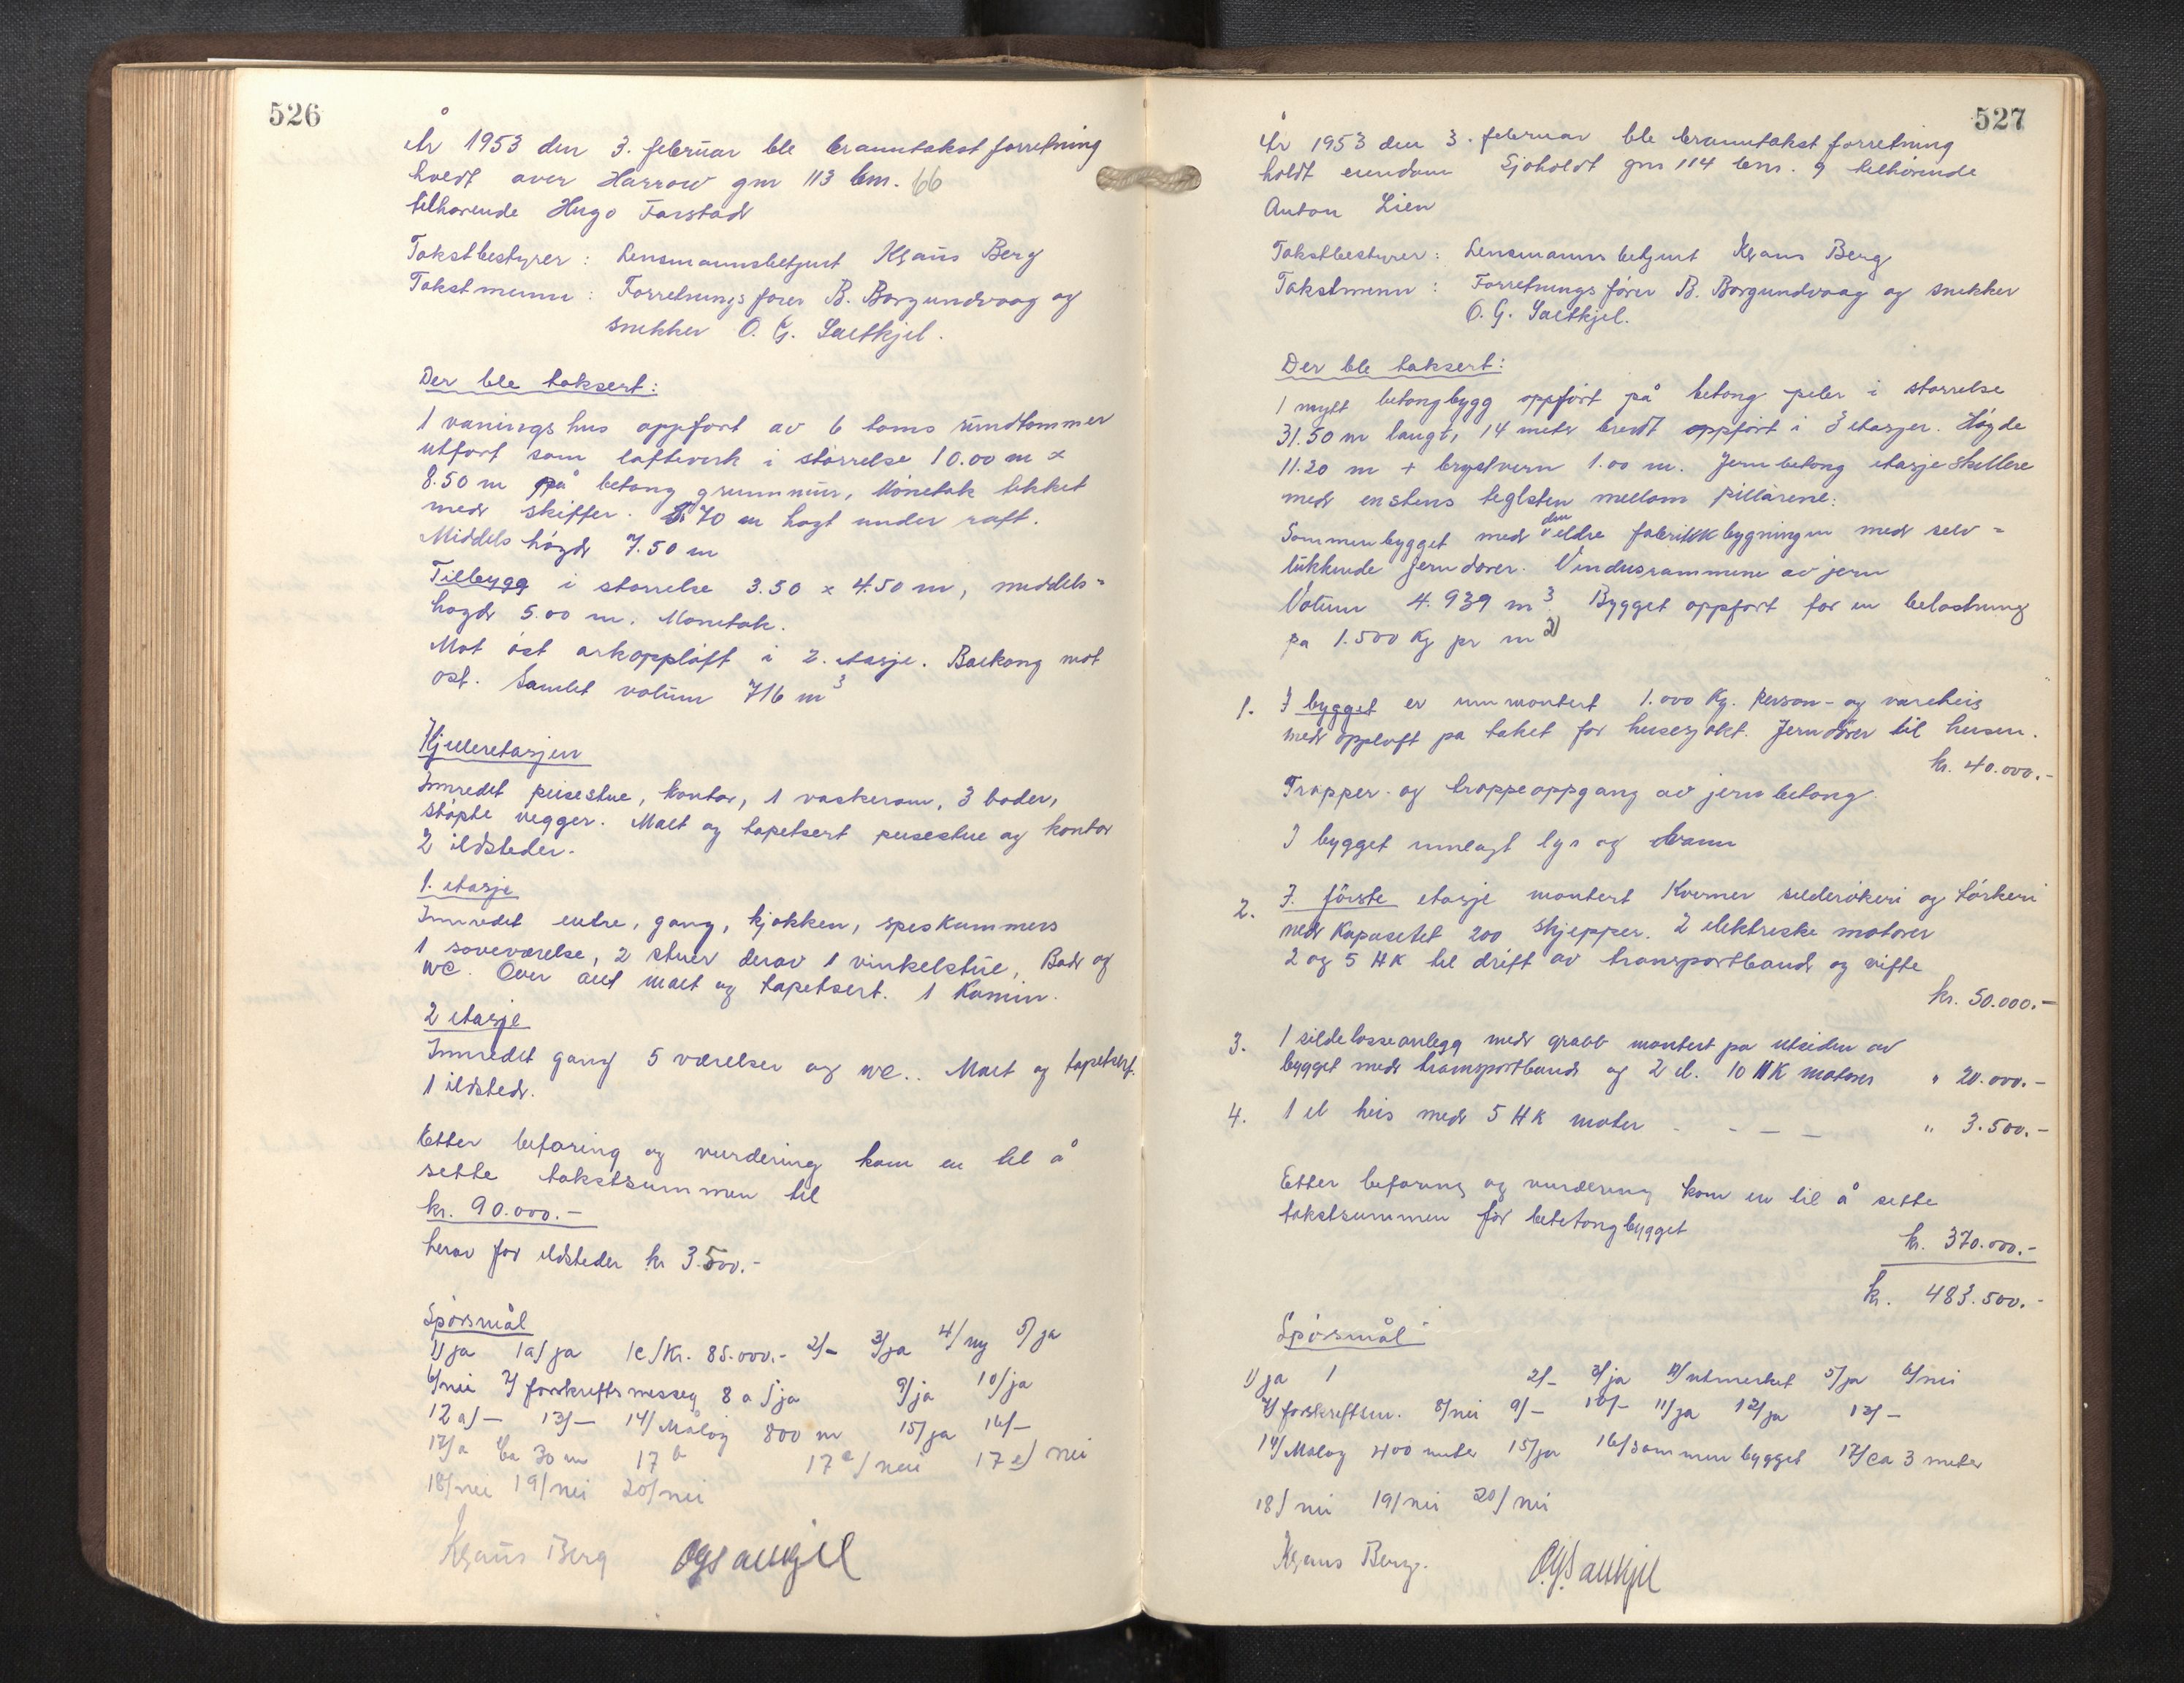 526
År 1953 den 3. februar ble branntakst forretning
holdt over Harrow gnr 113 bnr. 66
tilhørende Hugo Farstad
Takstbestyrer: Lensmannsbetjent Klaus Berg
Takstmenn: Forretningsfører B. Borgundvaag og
snekker O. G. Saetkjel.
Der ble taksert:
1 vånings hus oppført av 6 toms rundtømmer
utført som lafteverk i størrelse 10.00 m x
8.50 m på betong grunnmur, Mønetak tekket
med skiffer. 5.70 m høgt under raft.
Middels høgde 7.50 m
Tilbygg i størrelse 3.50 x 4.50 m, middels-
høgde 5.00 m. Mønetak.
Mot øst arkoppløft i 2. etasje. Balkong mot
øst. Samlet volum 716 m3
Kjelleretasjen
Innredet peisestue, kontor, 1 vaskerom, 3 boder,
støpte vegger. Malt og tapetsert peisestue og kontor
2 ildsteder.
1. etasje
Innredet entre, gang, kjøkken, spiskammers
1 soveværelse, 2 stuer derav 1 vinkelstue, Bad og
WC. Over alt malt og tapetsert. 1 Kamin.
2 etasje
Innredet gang 5 værelser og WC.. Malt og tapetsert.
1 ildsted.
Etter befaring og vurdering kom en til å
sette takstsummen til
kr. 90.000.-
herav for ildsteder kr 3.500.-
Spørsmål
1/ ja 1a/ ja 1c/ Kr. 85.000.- 2/- 3/ja 4/ ny 5/ ja
6/nei 7/ forskriftsmesseg 8 a/ ja 9/ja 10/ja
12 a/- 13/- 14/ Måløy 800 m 15/ ja 16/-
17/a Ca 30 m 17 b 17 c/ nei 17 e/ nei
18/nei 19/nei 20/nei
Klaus Berg OGSaetkjel
527
År 1953 den 3. februar ble branntakst forretning
holdt eiendom Sjøholdt gnr 114 bnr. 9 tilhørende
Anton Lien
Takstbestyrer: Lensmanns betjent Klaus Berg
Takstmenn: Forretningsfører B. Borgundvaag og snekker
O. G. Saetkjel.
Der ble taksert:
1 nytt betongbygg oppført på betong peler i størrelse
31.50 m langt, 14 meter bredt oppført i 3 etasjer. Høgde
11.20 m + brystvern 1.00 m. Jernbetong etasjeskillere
med enstens teglsten mellom pillarene.
Sammenbygget med den eldre fabrikkbygningen med selv-
lukkende jerndører. Vindusrammene av jern
Volum 4.939 m3. Bygget oppført for en belastning
pa 1.500 Kg pr m2
1. I bygget er innmontert 1.000 Kg. person- og vareheis
med oppløft pa taket for heisesjakt. Jerndører til heisen.
kr. 40.000.-
Trapper- og trappeoppgang av jernbetong.
I bygget innlagt lys og vann
2. I. første etasje montert Kverner silderøkeri og tørkeri
med Kapasetet 200 skjepper. 2 elektriske motorer
2 og 5 HK til drift av transportband og vifte
kr. 50.000.-
3. 1 sildelosseanlegg med grabb montert pa utsiden av
bygget med transportband og 2 el. 10 HK motorer " 20.000.-
4. 1 el heis med 5 HK motor - - - - " 3.500.-
Etter befaring og vurdering kom en til å sette
takstsummen for betetongbygget
kr. 370.000.-
kr. 483.500.-
Spørsmål
1/ ja 1 2/- 3/ ja 4/utmerket 5/ja 6/nei
7/ forskriftsm. 8/nei 9/- 10/- 11/ja 12/ja 13/-
14/Måløy 400 meter 15/ja 16/sammen bygget 17/ca 3 meter
18/ nei 19/ nei 20/ nei
Klaus Berg. O.G.Saetkjel